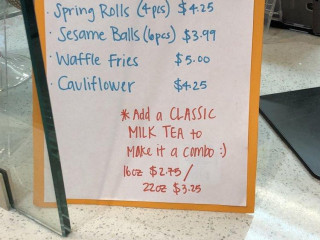 · Spring Rolls (4pcs) $4.25
· Sesame Balls (6pcs) $3.99
· Waffle Fries $5.00
· Cauliflower $4.25
* Add a CLASSIC
MILK TEA to
MAKE it a combo :)
16oz $2.75/
22oz $3.25